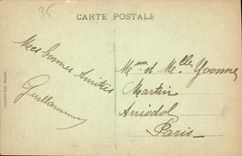 35
CARTE POSTALE
Mes bonnes Amitiés
Guillaume
Mme et Melle Yvonne
Martin
Aniodol
Paris